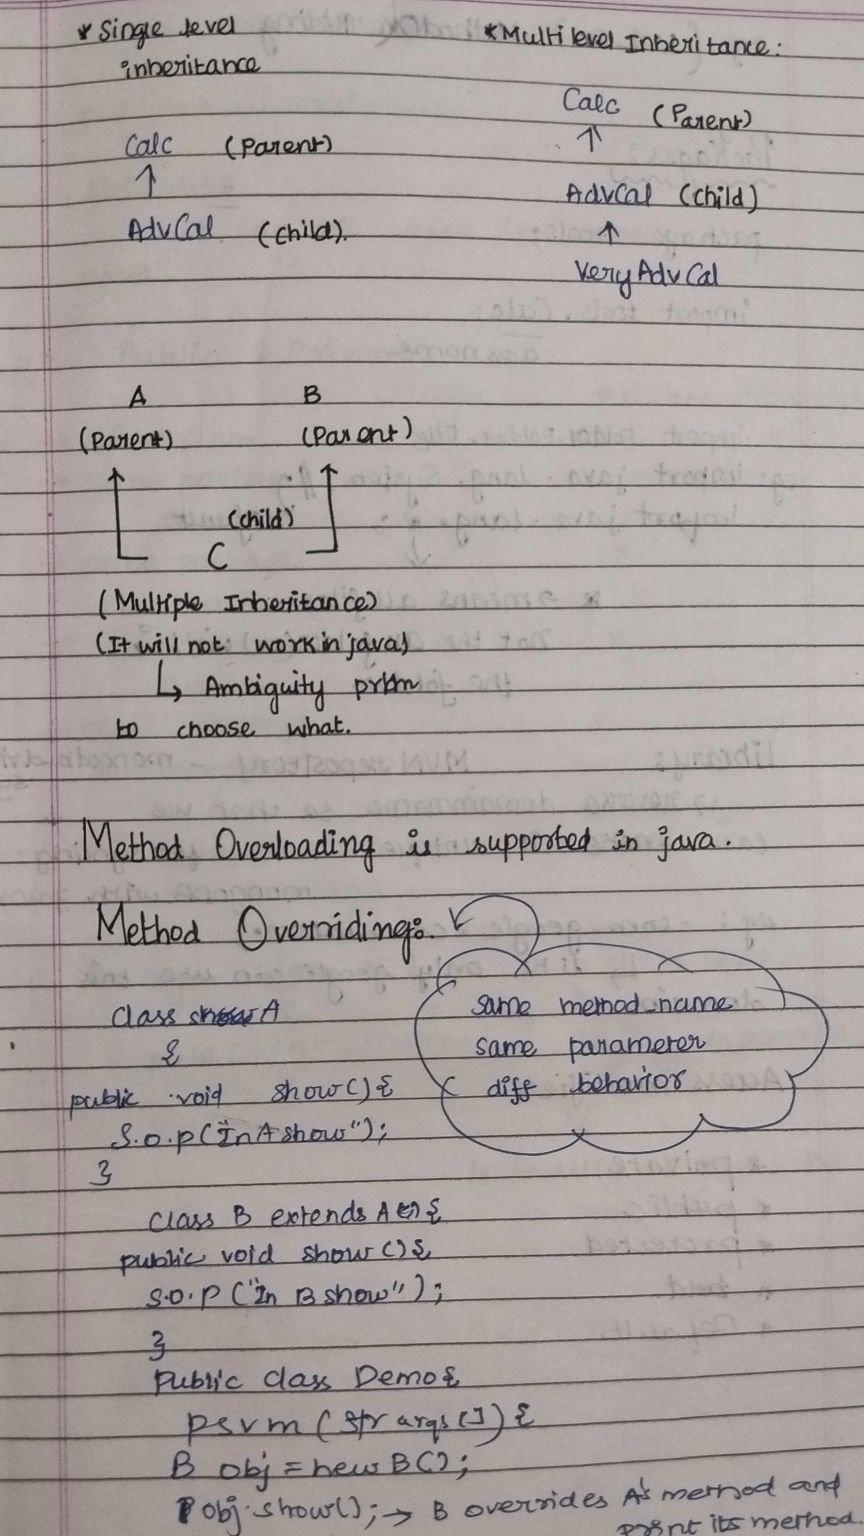 * Single level
inheritance
Calc (Parent)
AdvCal (child).
*Multilevel Inheritance:
Calc (Parent)
AdvCal (child)
VeryAdvCal
A B
(Parent) (Parent)
(child)
C
(Multiple Inheritance)
(It will not work in java)
↳ Ambiguity prblm
to choose what.
Method Overloading is supported in java.
Method Overriding:
same method name
same parameter
diff behavior
class A
{
public void show() {
S.o.p("In A show");
}
class B extends A {
public void show() {
S.o.P ("In B show");
}
Public class Demo {
psvm (Str args[]) {
B obj = new B();
obj.show(); → B overrides A's method and
print its method.